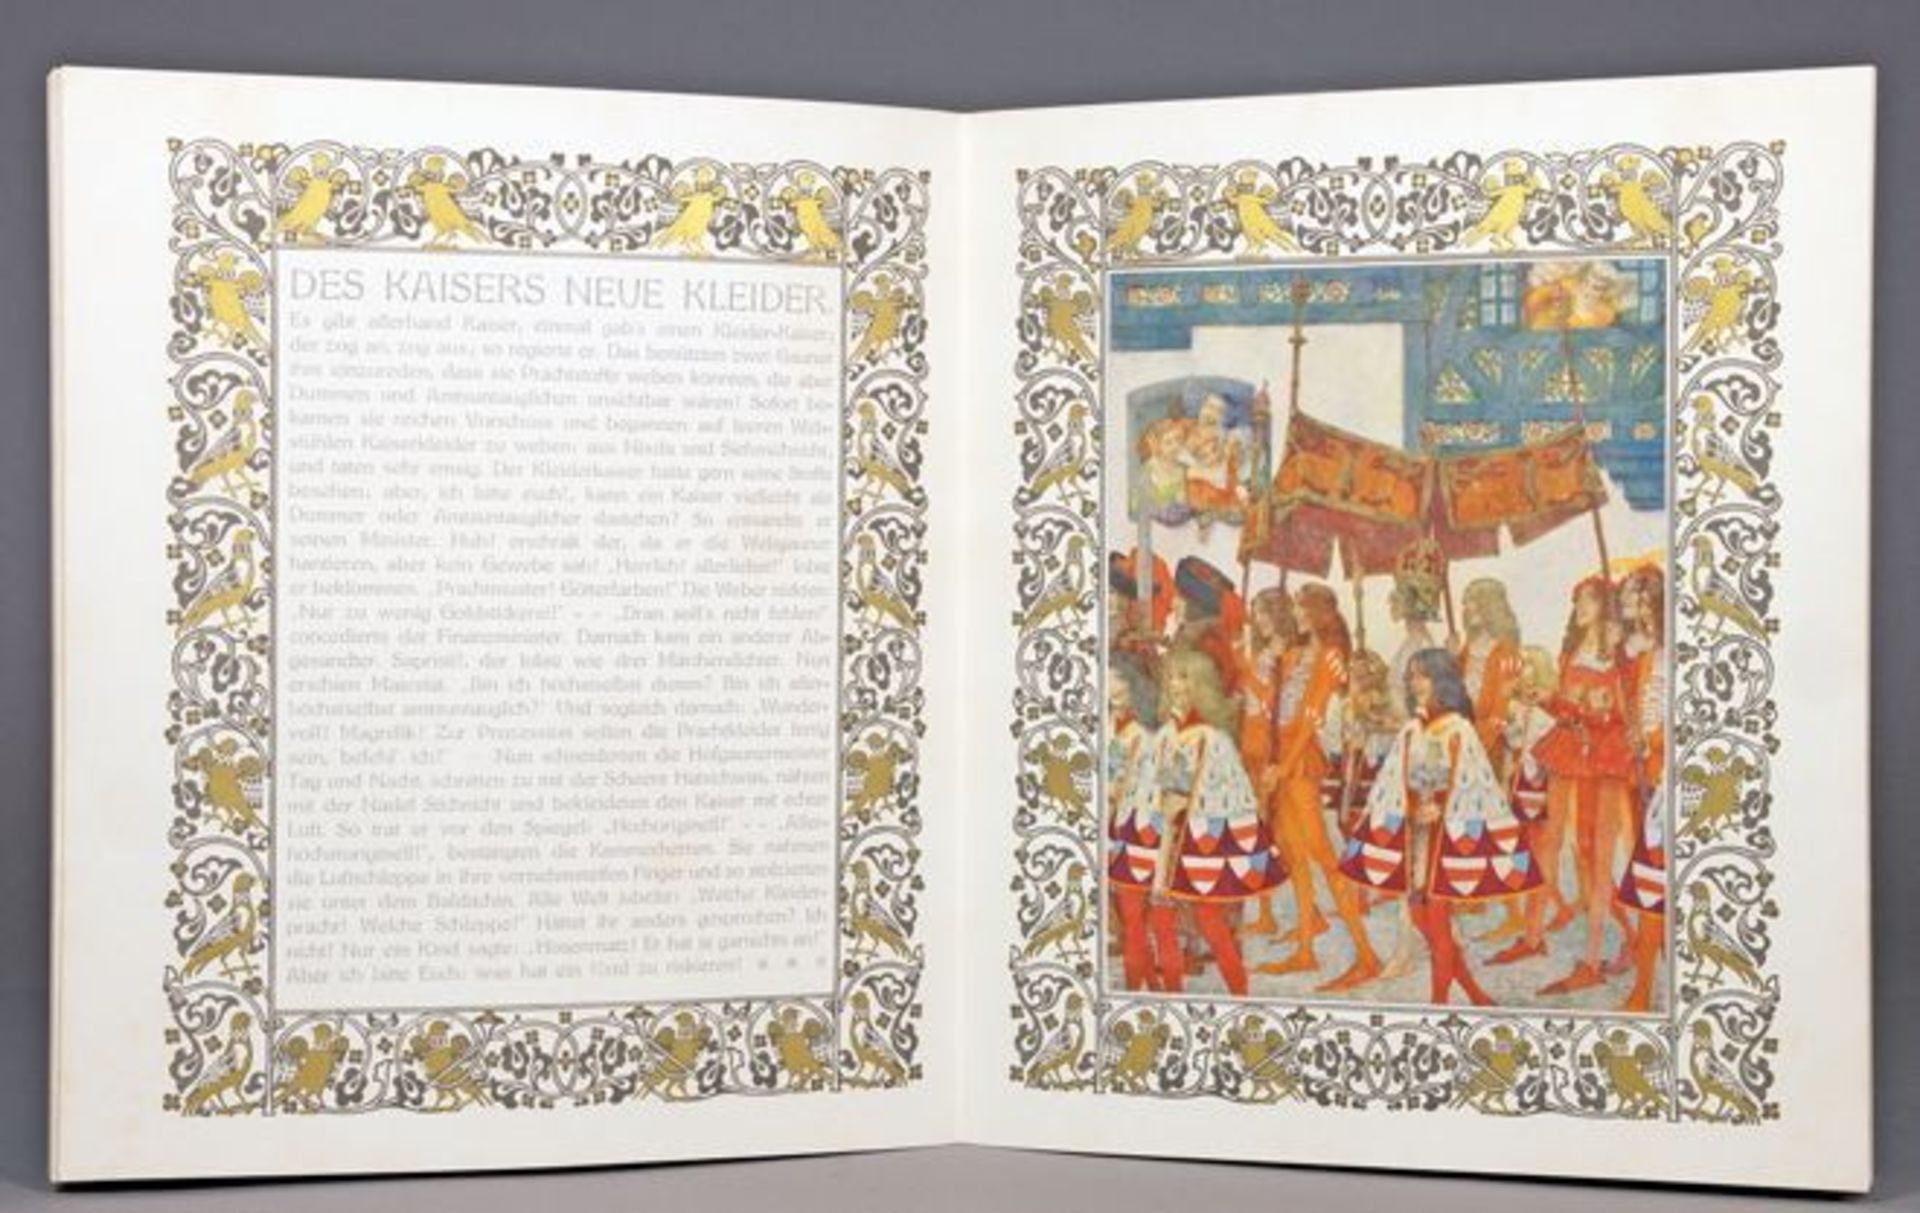 DES KAISERS NEUE KLEIDER.
Es gibt allerhand Kaiser, einmal gab's einen Kleider-Kaiser,
der zog an, zog aus, so regierte er. Das benützten zwei Gauner
ihm einzureden, dass sie Prachtstoffe weben könnten, die aber
Dummen und Amtsuntauglichen unsichtbar wären! Sofort be-
kamen sie reichen Vorschuss und begannen auf leeren Web-
stühlen Kaiserkleider zu weben: aus Nixda und Siehmichnicht,
und taten sehr emsig. Der Kleiderkaiser hätte gern seine Stoffe
besehen; aber, ich bitte euch!, kann ein Kaiser vielleicht als
Dummer oder Amtsuntauglicher dastehen? So entsandte er
seinen Minister. Huh! erschrak der, da er die Webgauner
hantieren, aber kein Gewebe sah! „Herrlich! allerliebst!" lobte
er beklommen. „Prachtmuster! Götterfarben!" Die Weber nickten:
„Nur zu wenig Goldstickerei!" - - „Dran soll's nicht fehlen!"
concedierte der Finanzminister. Darnach kam ein anderer Ab-
gesandter. Sapristi!, der lobte wie drei Märchendichter. Nun
erschien Majestät. „Bin ich höchstselbst dumm? Bin ich aller-
höchstselbst amtsuntauglich?" Und sogleich darnach: „Wunder-
voll! Magnifik! Zur Prozession sollen die Prachtkleider fertig
sein, befehl' ich!" — Nun schneiderten die Hofgaunermeister
Tag und Nacht, schnitten zu mit der Scheere Hatschwas, nähten
mit der Nadel Stichnicht und bekleideten den Kaiser mit edler
Luft. So trat er vor den Spiegel: „Hochoriginell!" - - „Aller-
höchstoriginell!", bestätigten die Kammerherren. Sie nahmen
die Luftschleppe in ihre vornehmsten Finger und so stolzierten
sie unter dem Baldachin. Alle Welt jubelte: „Welche Kleider-
pracht! Welche Schleppe!" Hättet ihr anders gesprochen? Ich
nicht! Nur ein Kind sagte: „Hosenmatz! Er hat ja garnichts an!"
Aber ich bitte Euch: was hat ein Kind zu riskieren!